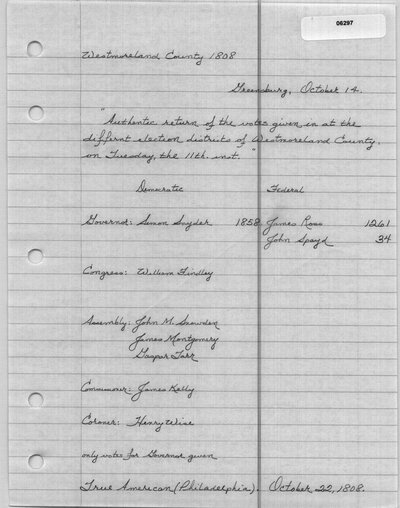 06297
Westmoreland County 1808
Greensburg, October 14.
"Authentic return of the votes given in at the
differnt election districts of Westmoreland County,
on Tuesday, the 11th. inst."
Democratic Federal
Governor: Simon Snyder 1858 James Ross 1261
John Spayd 34
Congress: William Findley
Assembly: John M. Snowden
James Montgomery
Gaspar Tarr
Commissioner: James Kelly
Coroner: Henry Wise
only votes for Governor given
True American (Philadelphia). October 22, 1808.